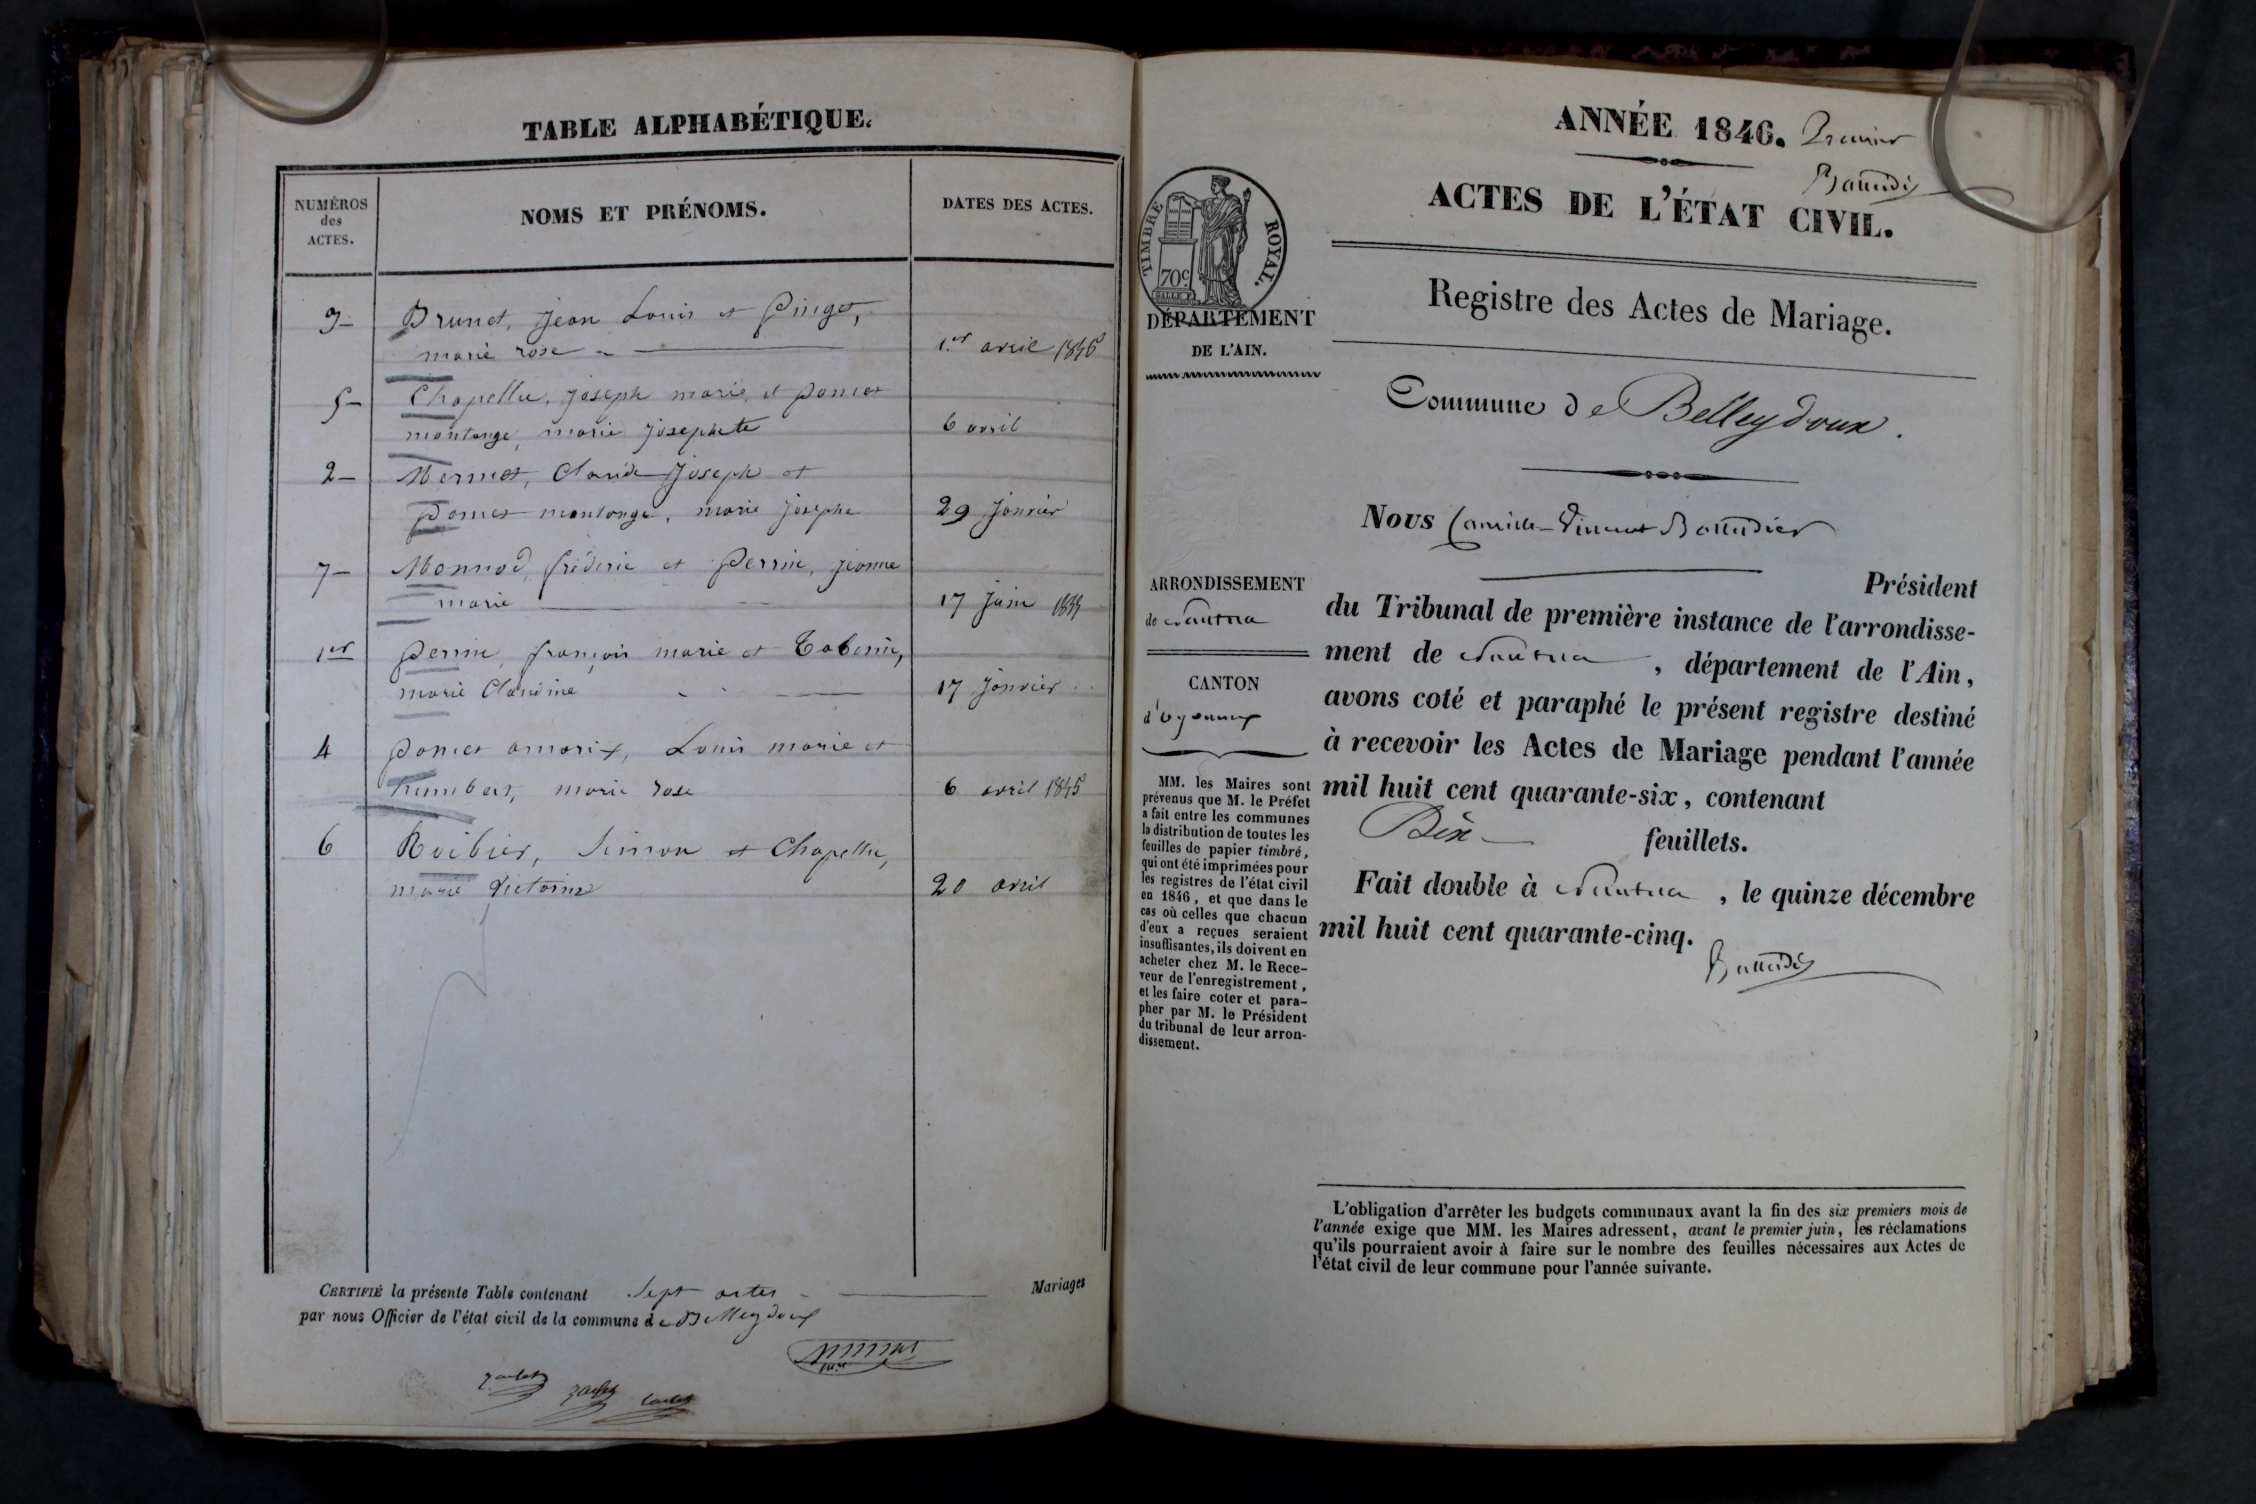 TABLE ALPHABÉTIQUE.
NUMÉROS
des
ACTES.
NOMS ET PRÉNOMS.
DATES DES ACTES.
3 Brunet, Jean Louis et Pinget,
marie rose 1er avril 1845
5 Chapellu, joseph marie, et poncet
montange, marie josephte 6 avril
2 Mermet, Claude Joseph et
poncet montange, marie josephe 29 janvier
7 Monnod, fréderic et Perrin, jeanne
marie 17 juin 1845
1er perrin, françois marie et
marie Claudine 17 janvier
4 poncet amorix, Louis marie et
humbert, marie rose 6 avril 1845
6 Roibier, Simon et Chapellu,
marie victoire 20 avril
CERTIFIÉ la présente Table contenant Sept actes Mariages
par nous Officier de l'état civil de la commune de Belleydoux
ANNÉE 1846. Premier
ACTES DE L'ÉTAT CIVIL.
TIMBRE ROYAL.
70c
DÉPARTEMENT
DE L'AIN.
Registre des Actes de Mariage.
Commune de Belleydoux.
Nous Camille Vincent Baudier
Président
ARRONDISSEMENT
de Nantua
CANTON
d'oyonnax
du Tribunal de première instance de l'arrondisse-
ment de Nantua, département de l'Ain,
avons coté et paraphé le présent registre destiné
à recevoir les Actes de Mariage pendant l'année
mil huit cent quarante-six, contenant
feuillets.
Fait double à Nantua, le quinze décembre
mil huit cent quarante-cinq.
MM. les Maires sont
prévenus que M. le Préfet
a fait entre les communes
la distribution de toutes les
feuilles de papier timbré,
qui ont été imprimées pour
les registres de l'état civil
en 1846, et que dans le
cas où celles que chacun
d'eux a reçues seraient
insuffisantes, ils doivent en
acheter chez M. le Rece-
veur de l'enregistrement,
et les faire coter et para-
pher par M. le Président
du tribunal de leur arron-
dissement.
L'obligation d'arrêter les budgets communaux avant la fin des six premiers mois de
l'année exige que MM. les Maires adressent, avant le premier juin, les réclamations
qu'ils pourraient avoir à faire sur le nombre des feuilles nécessaires aux Actes de
l'état civil de leur commune pour l'année suivante.